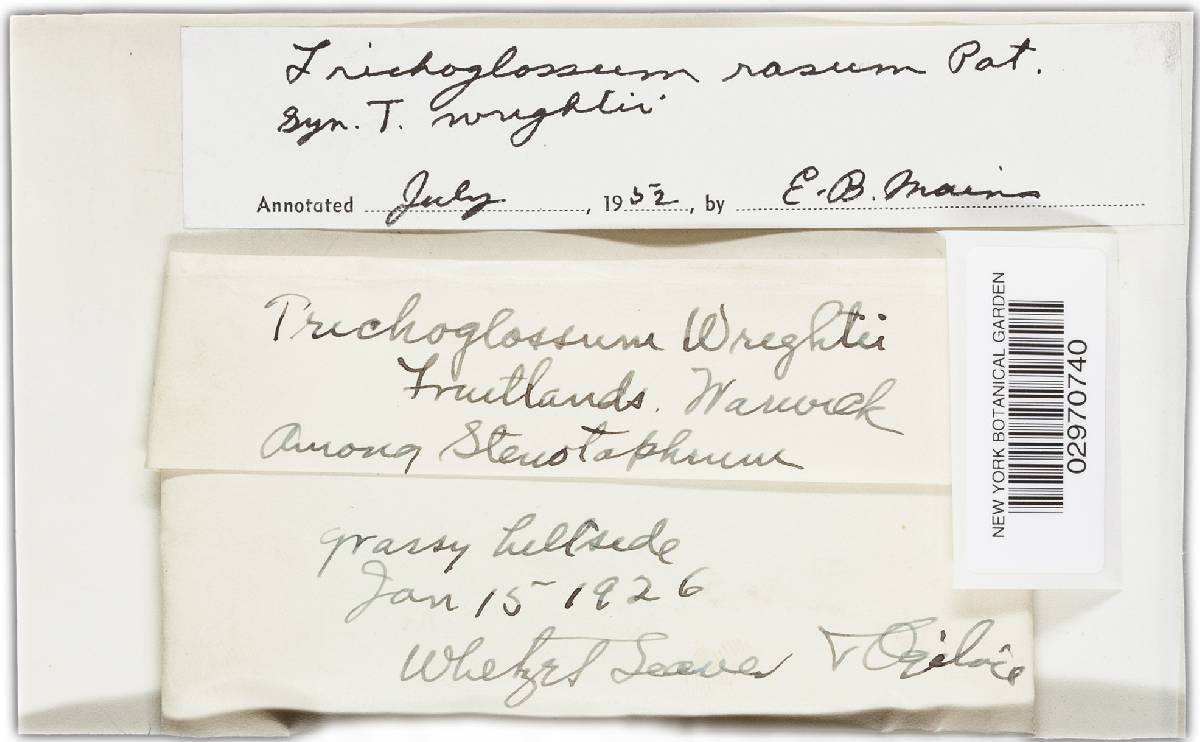 Trichoglossum rasum Pat.
Syn. T. wrightii
Annotated July, 1952, by E. B. Mains
Trichoglossum Wrightii
Fruitlands. Warwick
Among Stenotaphrum
grassy hillside
Jan 15 1926
Whetzel Seaver & Ogilvie
NEW YORK BOTANICAL GARDEN
02970740